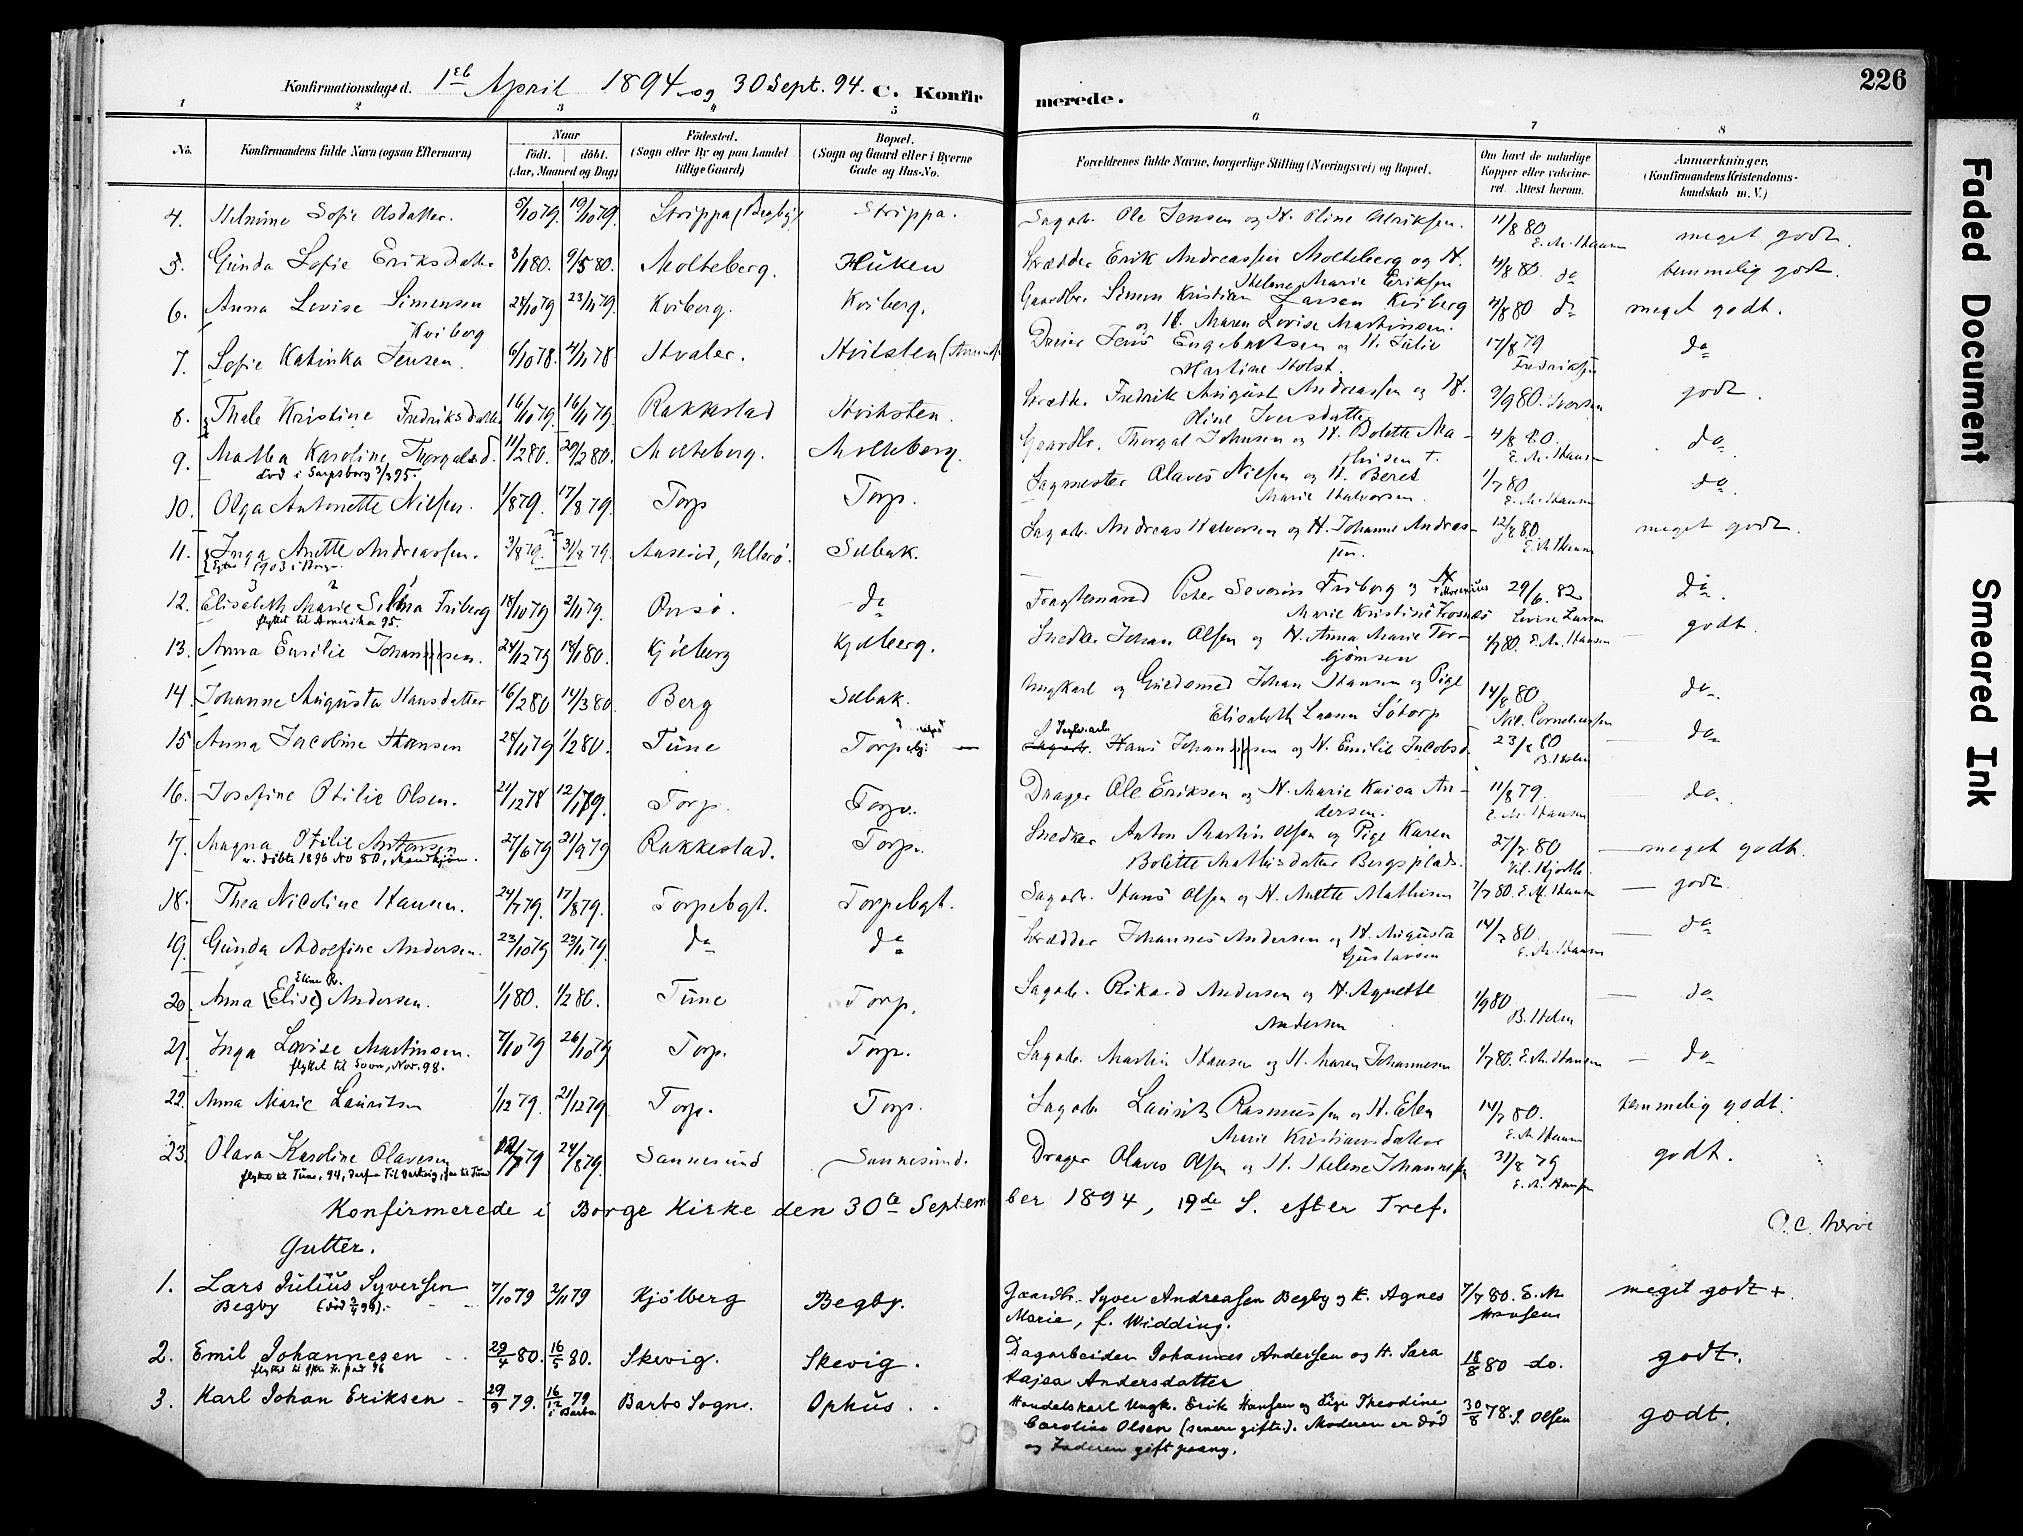 Konfirmationsdaged. 1ste April 1894 og 30 Sept. 94. C. Konfirmerede. 226
1 2 3 4 5 6 7 8
No. Konfirmandens fulde Navn (ogsaa Efternavn) Naar født. døbt. (Aar, Maaned og Dag) Fødested. (Sogn eller By og paa Landet tillige Gaard) Bopæl. (Sogn og Gaard eller i Byerne Gade og Hus-No. Forældrenes fulde Navne, borgerlige Stilling (Næringsvei) og Bopæl. Om havt de naturlige Kopper eller vakcineret. Attest herom. Anmærkninger. (Konfirmandens Kristendomskundskab m. V.)
4. Helmine Sofie Olsdatter. 5/10 79. 19/10 79. Strippa (Begby) Strippa. Sagarb. Ole Jensen og H. Oline Ulriksen. 11/8 80 E. M. Hansen meget godt.
5. Gunda Sofie Eriksdatter 3/1 80. 9/5 80. Molteberg. Huken Skrædder Erik Andreassen Molteberg og H. Helene Marie Eriksen 4/8 80. do temmelig godt.
6. Anna Lovise Simensen Kviberg 24/10 79 23/11 79. Kviberg. Kviberg. Gaardbr. Simen Kristian Larsen Kviberg og H. Maren Lovise Martinsen. 4/8 80 do meget godt.
7. Sofie Katinka Jensen. 6/10 78. 4/11 78 Hvaler. Hvitsten Dreier Jens Engebretsen og H. Julie Martine Holst. 17/8 79 do
8. Thale Kristine Fredriksdatter 16/10 79. 16/11 79. Rakkestad Hvitsten. Skrædder. Fredrik August Andreassen og H. Oline Iversdatter 9/9 80. godt.
9. Malla Karoline Thorgalsd. 11/2 80. 20/2 80. Molteberg. Molteberg. Gaardbr. Thorgal Johnsen og H. Bolette Mathisen †. 4/8 80. E. M. Hansen do.
død i Sarpsborg 3/3 95.
10. Olga Antonette Nilsen. 1/8 79. 17/8 79. Torp Torp. Sagmester Olaves Nilsen og H. Beret Marie Halvorsen. 1/7 80 E. M. Hansen do.
11. Inga Anette Andreassen. 3/8 79. 31/8 79. Selbak. Sagarb. Andreas Halvorsen og H. Johanne Andreassen. 12/8 80. E. M. Hansen meget godt.
12. Elisabeth Marie Selma Friberg 18/10 79 2/11 79. Onsø. do Fragtemand Peter Severin Friborg og H. Marie Kristine 29/6. 82 Lovise Larsen do.
flyttet til Amerika 95.
13. Anna Emilie Johannesen. 24/12 79 18/1 80. Kjølberg Kjølberg. Snedker Johan Olsen og H. Anna Marie Torbjømsen 1/7 80. E. M. Hansen godt.
14. Johanne Augusta Hansdatter 16/2 80 14/3 80. Berg Selbak. Ungkarl og Johan Hansen og Pige Elisabeth Søtorp 14/8 80 Corneliussen do.
15 Anna Jacobine Hansen 28/11 79 1/2 80. Tune Torp Hans Johansen og H. Emilie Jacobsd. 23/8 80 B. Holm do.
16. Josefine Otilie Olsen. 21/12 78 12/1 79. Torp. Torp. Drager Ole Eriksen og H. Marie Kaisa Andersen. 11/8 79. E. M. Hansen do.
17. Magna Otilie Antonsen 27/6 79 21/9 79 Rakkestad. Torp. Snedker Anton Martin Olsen og Pige Karen Bolette Mathisdatter Bergsplads. 27/7 80 meget godt.
v. døbte 1896 No 80, Mandkjøn.
18. Thea Nicoline Hansen. 24/7 79. 17/8 79. Torpebgt. Torpebgt. Sagarb. Hans Olsen og H. Anette Mathisen 7/7 80. E. M. Hansen godt.
19. Gunda Adolfine Andersen. 23/10 79 23/11 79. do do Skrædder Johannes Andersen og H. Augusta Gustavsen 14/7 80. E. M. Hansen do
20. Anna (Elise) Eline R. Andersen. 1/1 80. 1/2 80. Tune Torp. Sagarb. Rikard Andersen og H. Agnette Andersen 1/9 80 B. Holm do
21. Inga Lovise Martinsen. 7/10 79 26/10 79 Torp. Torp. Sagarb. Martin Hansen og H. Maren Johannesen 1/7 80. E. M. Hansen do
22. Anna Marie Lauritsen 1/12 79. 21/12 79. Torp. Torp. Sagarb. Laurits Rasmussen og H. Elen Marie Kristiansdatter 14/7 80. E. M. Hansen temmelig godt.
23. Olava Karoline Olavesen 24/8 79. Sannesund Sannesund. Drager Olaves Olsen og H. Helene Johannesen 31/8 79 E. M. Hansen godt.
Konfirmerede i Borge Kirke den 30te September 1894, 19de S. efter Tref.
Gutter.
1. Lars Julius Syversen Begby 7/10 79 2/11 79 Kjølberg Begby. Gaardbr. Syver Andreassen Begby og H. Agnes Marie, f. Widding. 7/7 80. E. M. Hansen meget godt +
2. Emil Johannesen 29/4 80. 16/5 80. Skevig. Skevig. Dagarbeider Johannes Andersen og H. Sara Kajsa Andersdatter 18/8 80 do. godt.
3. Karl Johan Eriksen 29/9 79. 16/12 79 i Barbo. Barbo Sogn. Ophus. Handelskarl Ungk. Erik Hansen og Pige Theodine Caroline Olsen (senere gifte). Moderen er død og Faderen gift paany. 30/8 78. S. Olsen godt.
Faded Document
Smeared Ink